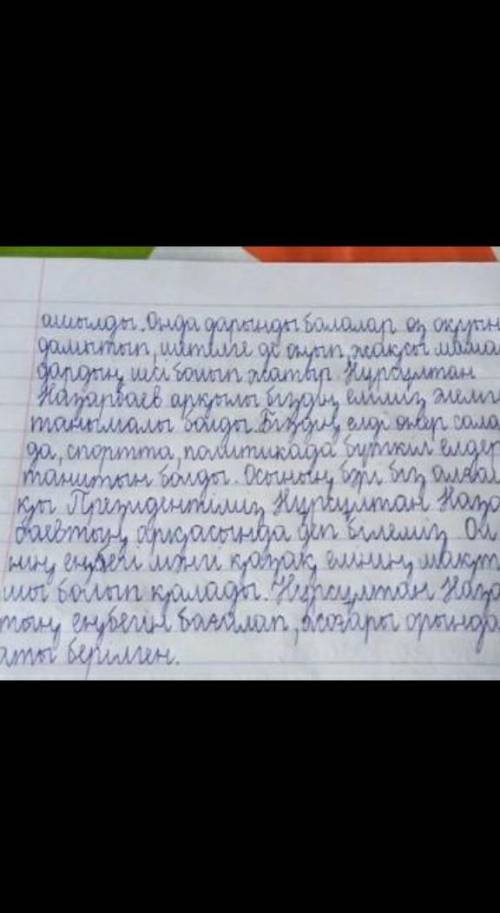 ашылды. Онда дарынды балалар өз оқуын
дамытып, шетелге де оқып, жақсы мама
дардың иесі болып жатыр. Нұрсұлтан
Назарбаев арқылы біздің еліміз әлемге
танымалы болды. Біздің елді өнер сала
да, спортта, политикада бүткіл елдер
танитын болды. Осының бәрі біз алғаш
қы Президентіміз Нұрсұлтан Наза
баевтың арқасында деп білеміз. Ол
нің еңбегі мәңгі қазақ елінің мақт
шы болып қалады. Нұрсұлтан Наза
тың еңбегін бағалап, жоғары орында
аты берілген.